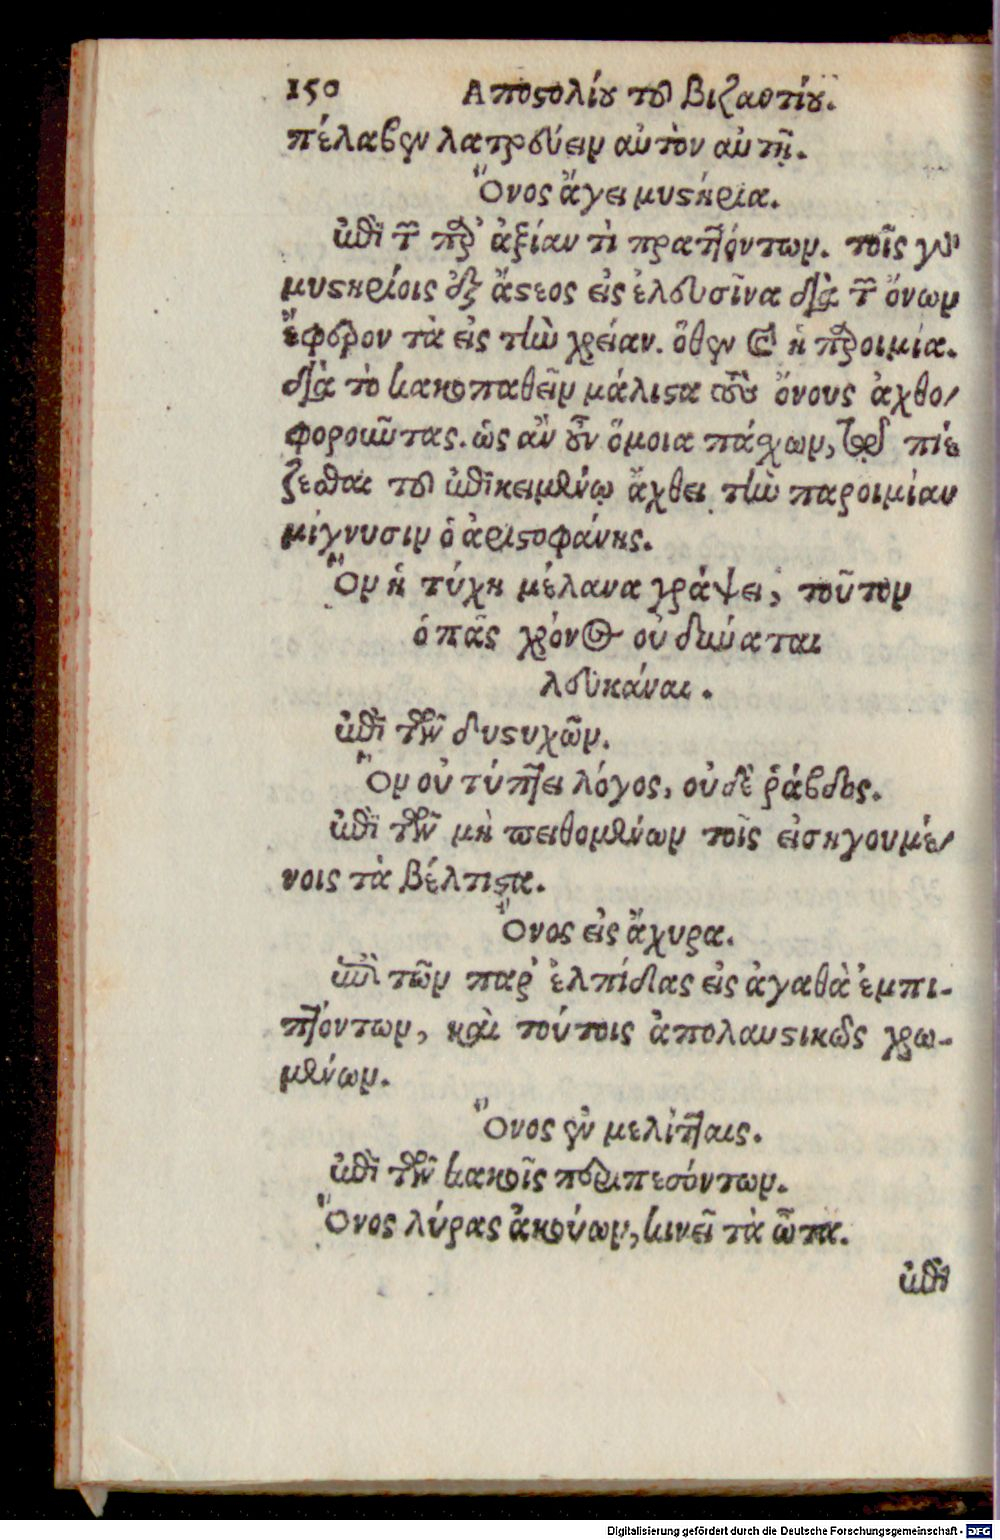 150 Αποϛολίου τοῦ βιζαντίου.
πέλαβεν λατρεύειν αὐτὸν αὐτῇ.
Ὄνος ἄγει μυϛήρια.
ἐπὶ τῶν παρ' ἀξίαν τὶ πραττόντων. τοῖς γὰρ
μυϛηρίοις ἐξ ἄϛεος εἰς ἐλευσῖνα διὰ τῶν ὄνων
ἔφερον τὰ εἰς τὴν χρείαν. ὅθεν καὶ ἡ παροιμία.
διὰ τὸ κακοπαθεῖν μάλιϛα τοὺς ὄνους ἀχθο/
φοροῦντας. ὡς ἂν οὖν ὅμοια πάσχων, καὶ πιέ
ζεσθαι τοῦ ἐπικειμένῳ ἄχθει τὴν παροιμίαν
μίγνυσιν ὁ ἀριϛοφάνης.
Ὃν ἡ τύχη μέλανα γράψει, τοῦτον
ὁ πᾶς χρόνος οὐ δύναται
λευκάναι.
ἐπὶ τῶν δυϛυχῶν.
Ὃν οὐ τύπτει λόγος, οὐδὲ ῥάβδος.
ἐπὶ τῶν μὴ πειθομένων τοῖς εἰσηγουμέ/
νοις τὰ βέλτιϛα.
Ὄνος εἰς ἄχυρα.
ἐπὶ τῶν παρ' ἐλπίδας εἰς ἀγαθὰ ἐμπι-
πτόντων, καὶ τούτοις ἀπολαυϛικῶς χρω-
μένων.
Ὄνος ἐν μελίτταις.
ἐπὶ τῶν κακοῖς περιπεσόντων.
Ὄνος λύρας ἀκούων, κινεῖ τὰ ὦτα.
ἐπὶ
Digitalisierung gefördert durch die Deutsche Forschungsgemeinschaft - DFG